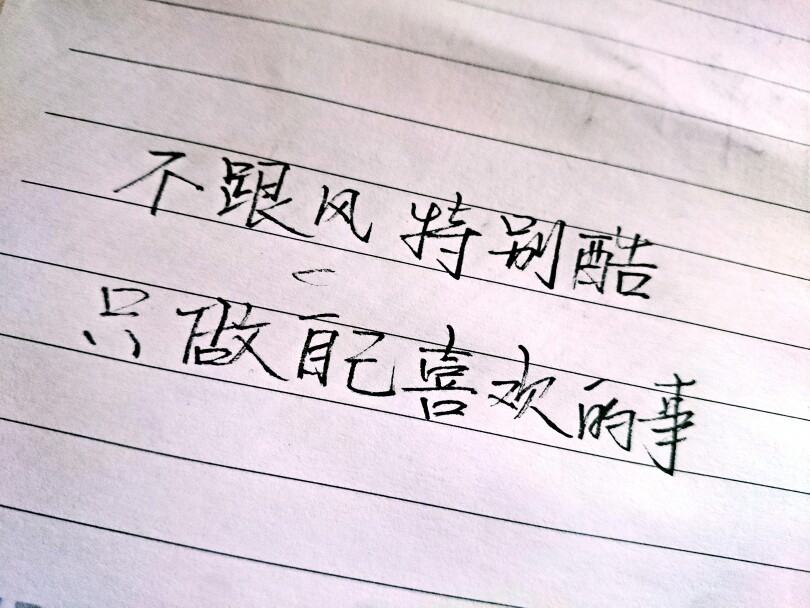 不跟风特别酷
只做自己喜欢的事